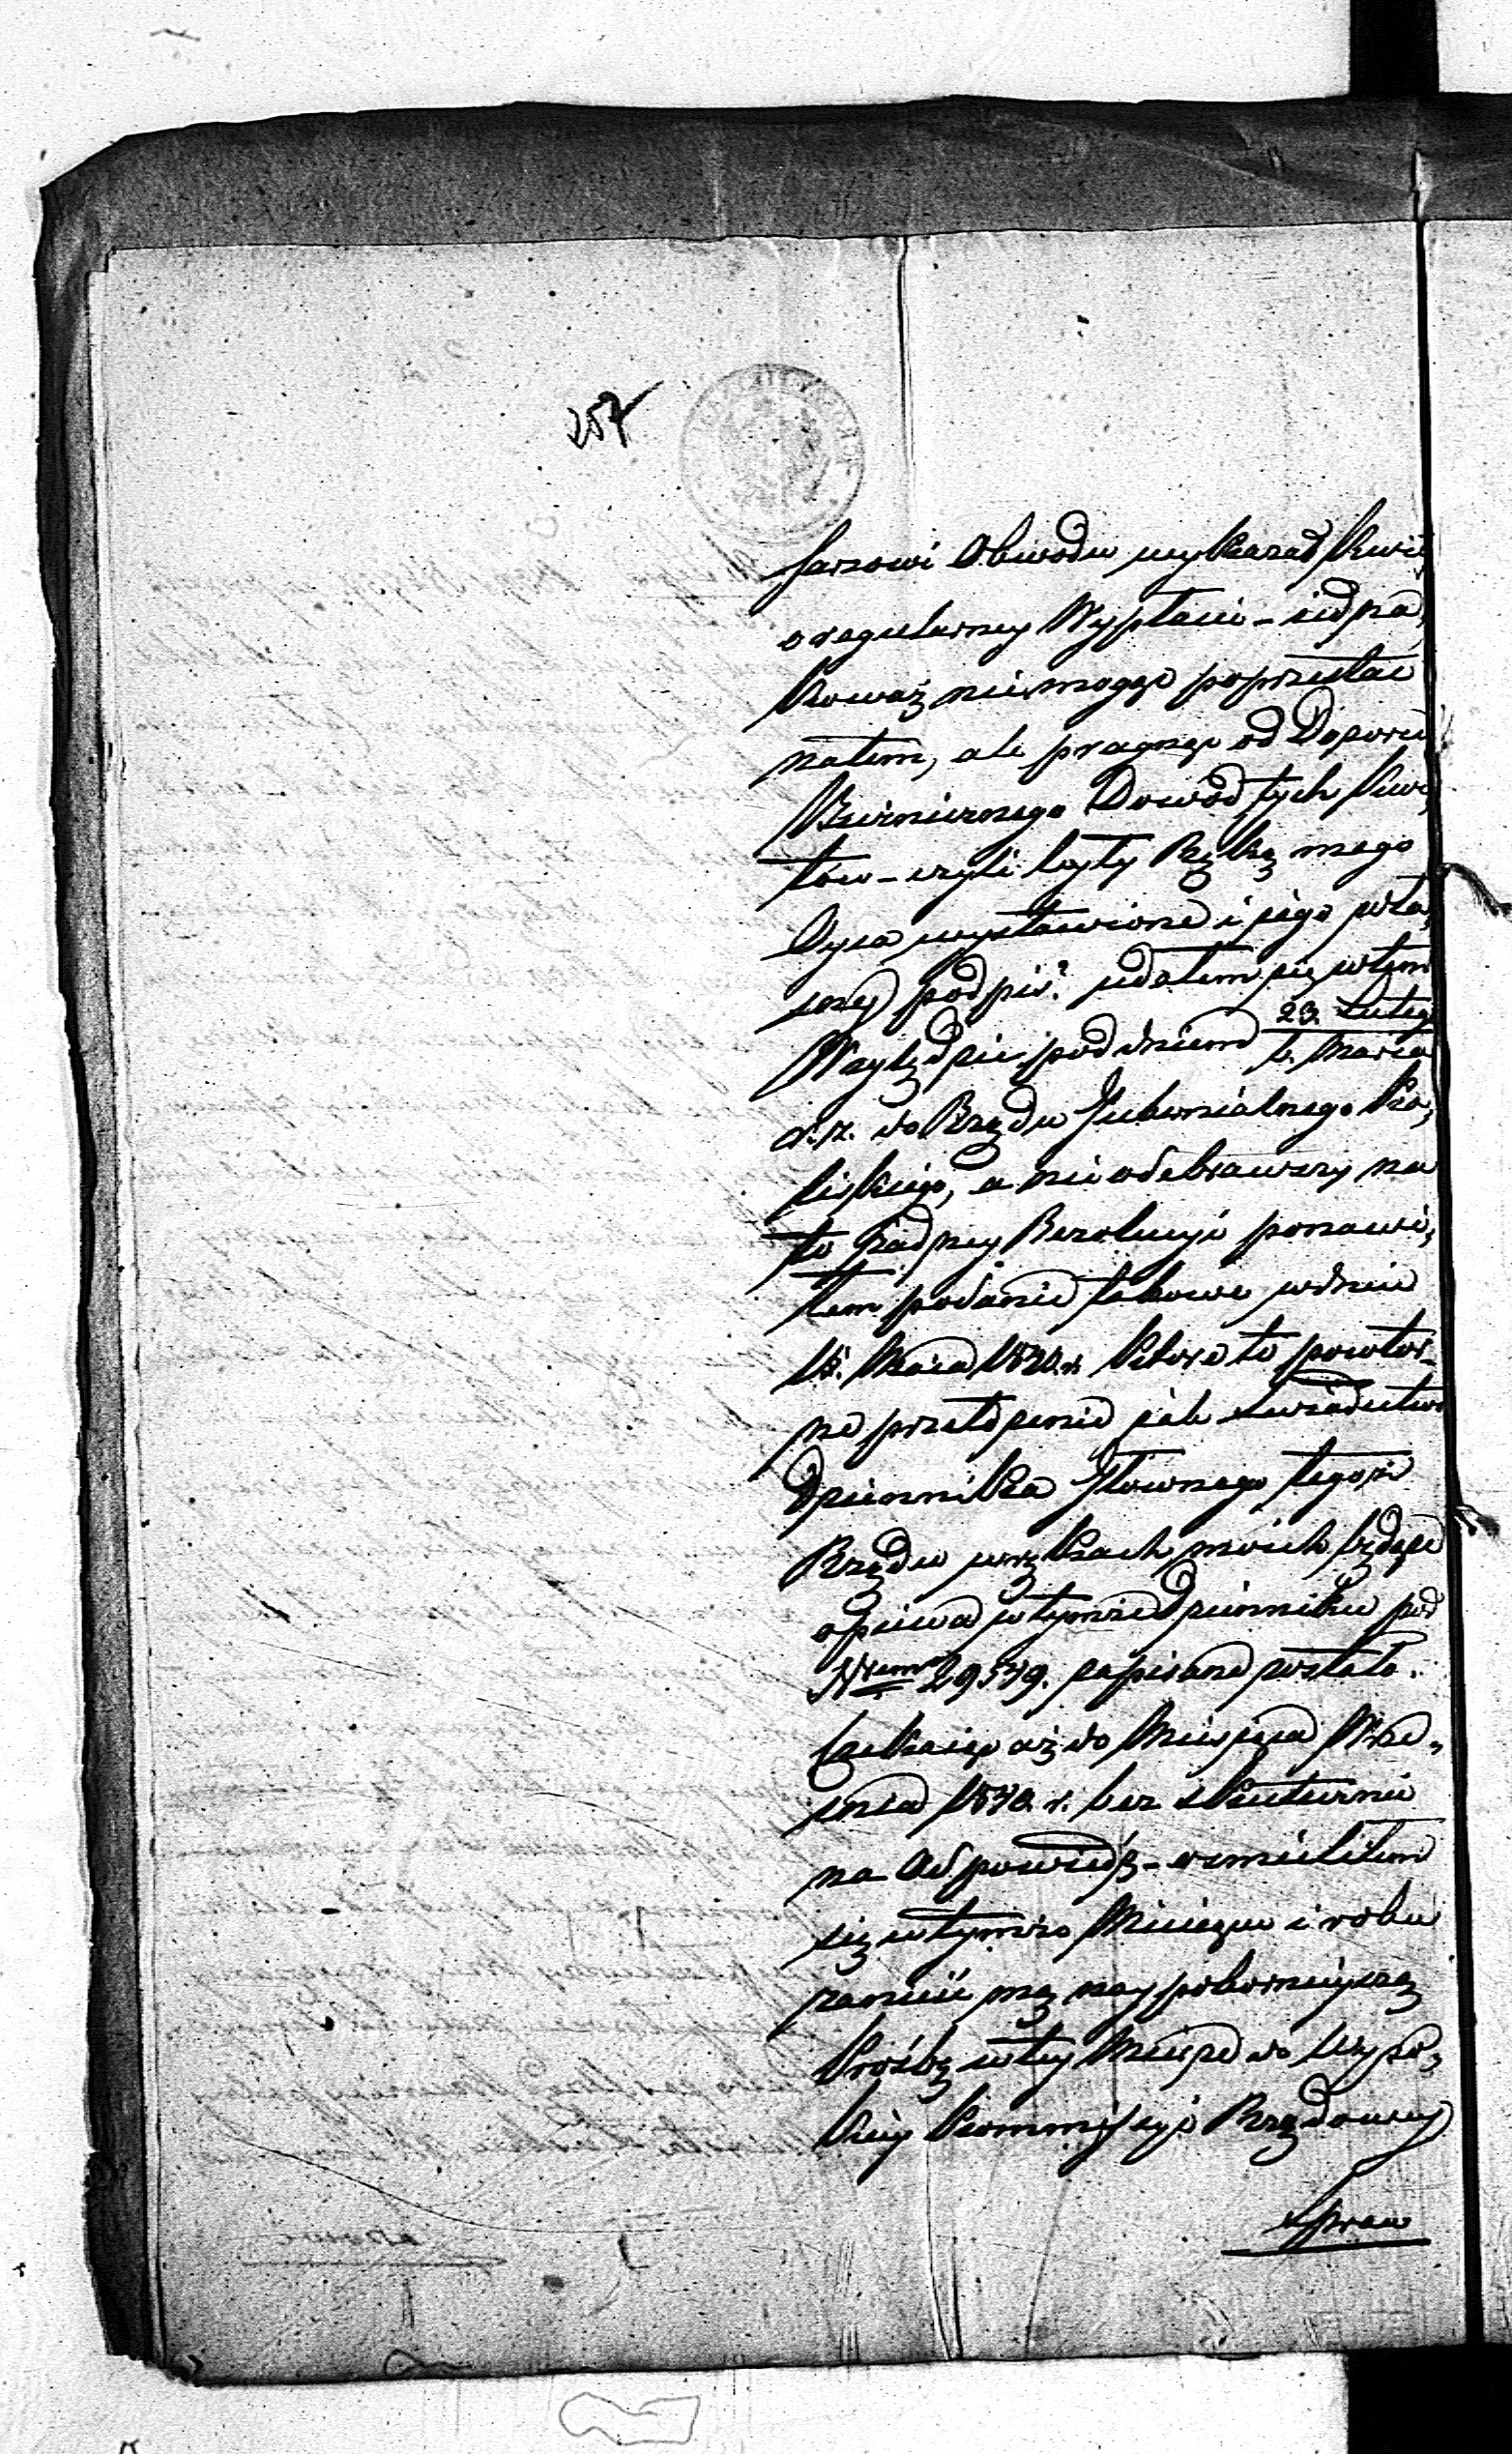 257
sarzowi Obwodu wykazał Kwit
o regularney Wypłacie – iednak,
kowoż nie mogąc poprzestać
natem, ale pragnąc od Dozoru
Bużniczego Dowód tych Kwi,
tów – czyli były Ręką mego
Oyca wystawione i jego wła,
sny podpis? udałem się w tem
Względzie pod dniem 23. Lutego
6. Marca
r. z. do Rządu Gubernialnego Ka,
liskiego, a nie odebrawszy na
to żadney Rezolucyi ponawi,
łem podanie takowe w dniu
Maia 1838. r. Które to powtór-
ne przełożenie jak świadectwo
Dziennika Głównego tegoż
Rządu w rękach moich będące
opiewa w tymże Dzienniku pod
Nrem 29549. zapisane zostało.
Czekaiąc aż do Miesiąca Wrze„
śnia 1838. r. bez skutecznie
na Odpowiedź – ośmieliłem
się w tymże Miesiącu i roku
zanieść mą naypokornieyszą
Prośbę w tey Mierze do Wyso,
kiey Kommissyi Rządowey
Spraw